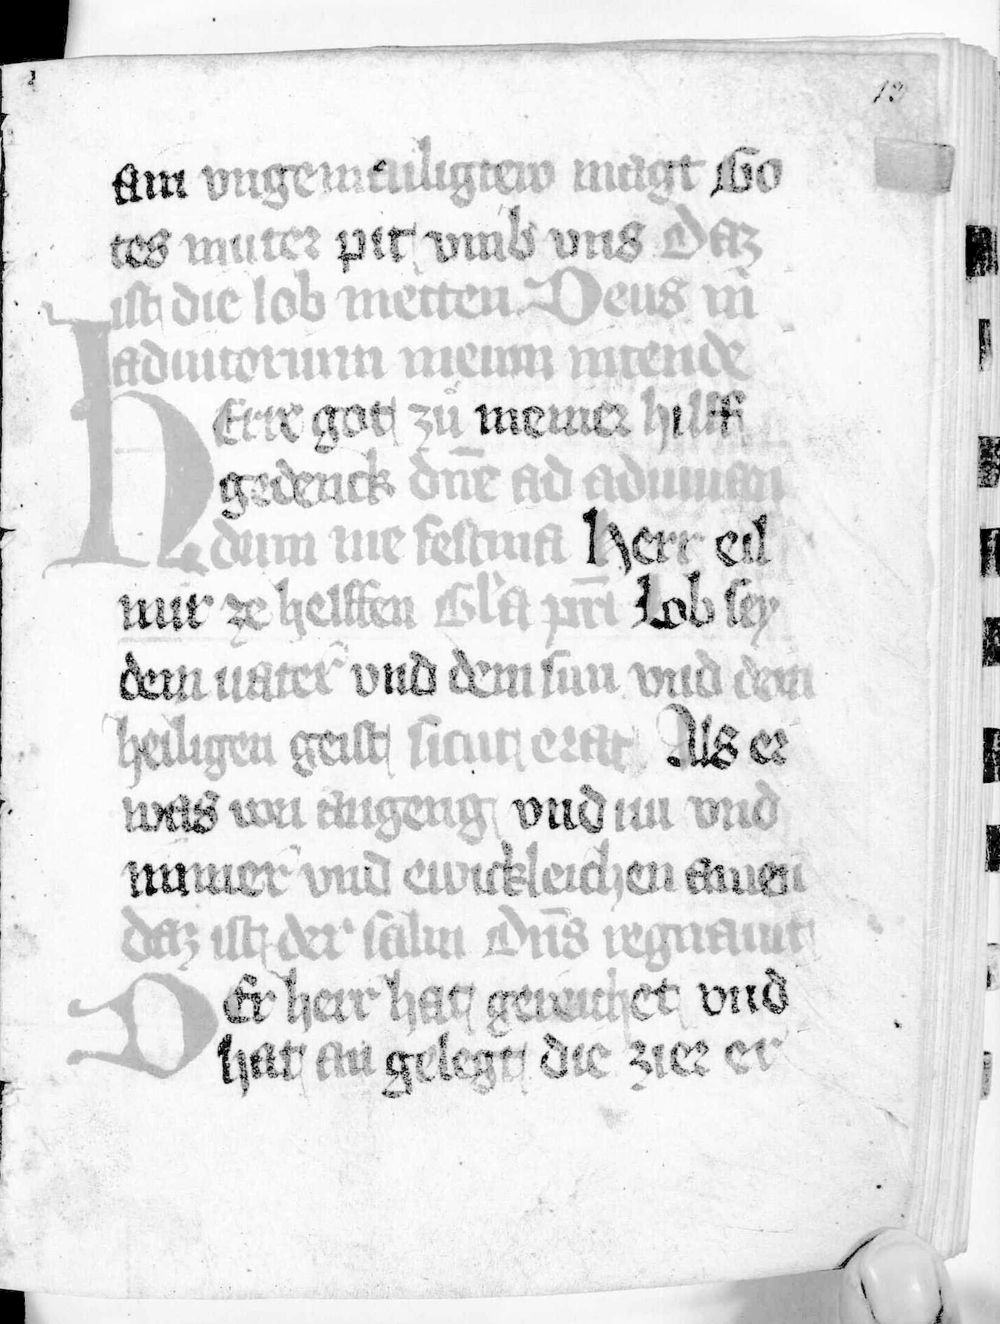 12
ain vngemailigtew magt Go
tes muter pit vmb vns Daz
ist die lob metten Deus in̄
adiutorium meum intende
HErre got zů meiner hilff
gedenck dn̄e ad adiuuan
dum me festina Herr eil
mir ze helffen Gl'a pr̄i Lob sey
dem uater vnd dem sun vnd dem
heiligen geist sicut erat Als er
was von angeng vnd nu vnd
immer vnd ewickleichen amen
daz ist der salm Dn̄s regnauit
DEr herr hat gereichet vnd
hat an gelegt die zier er